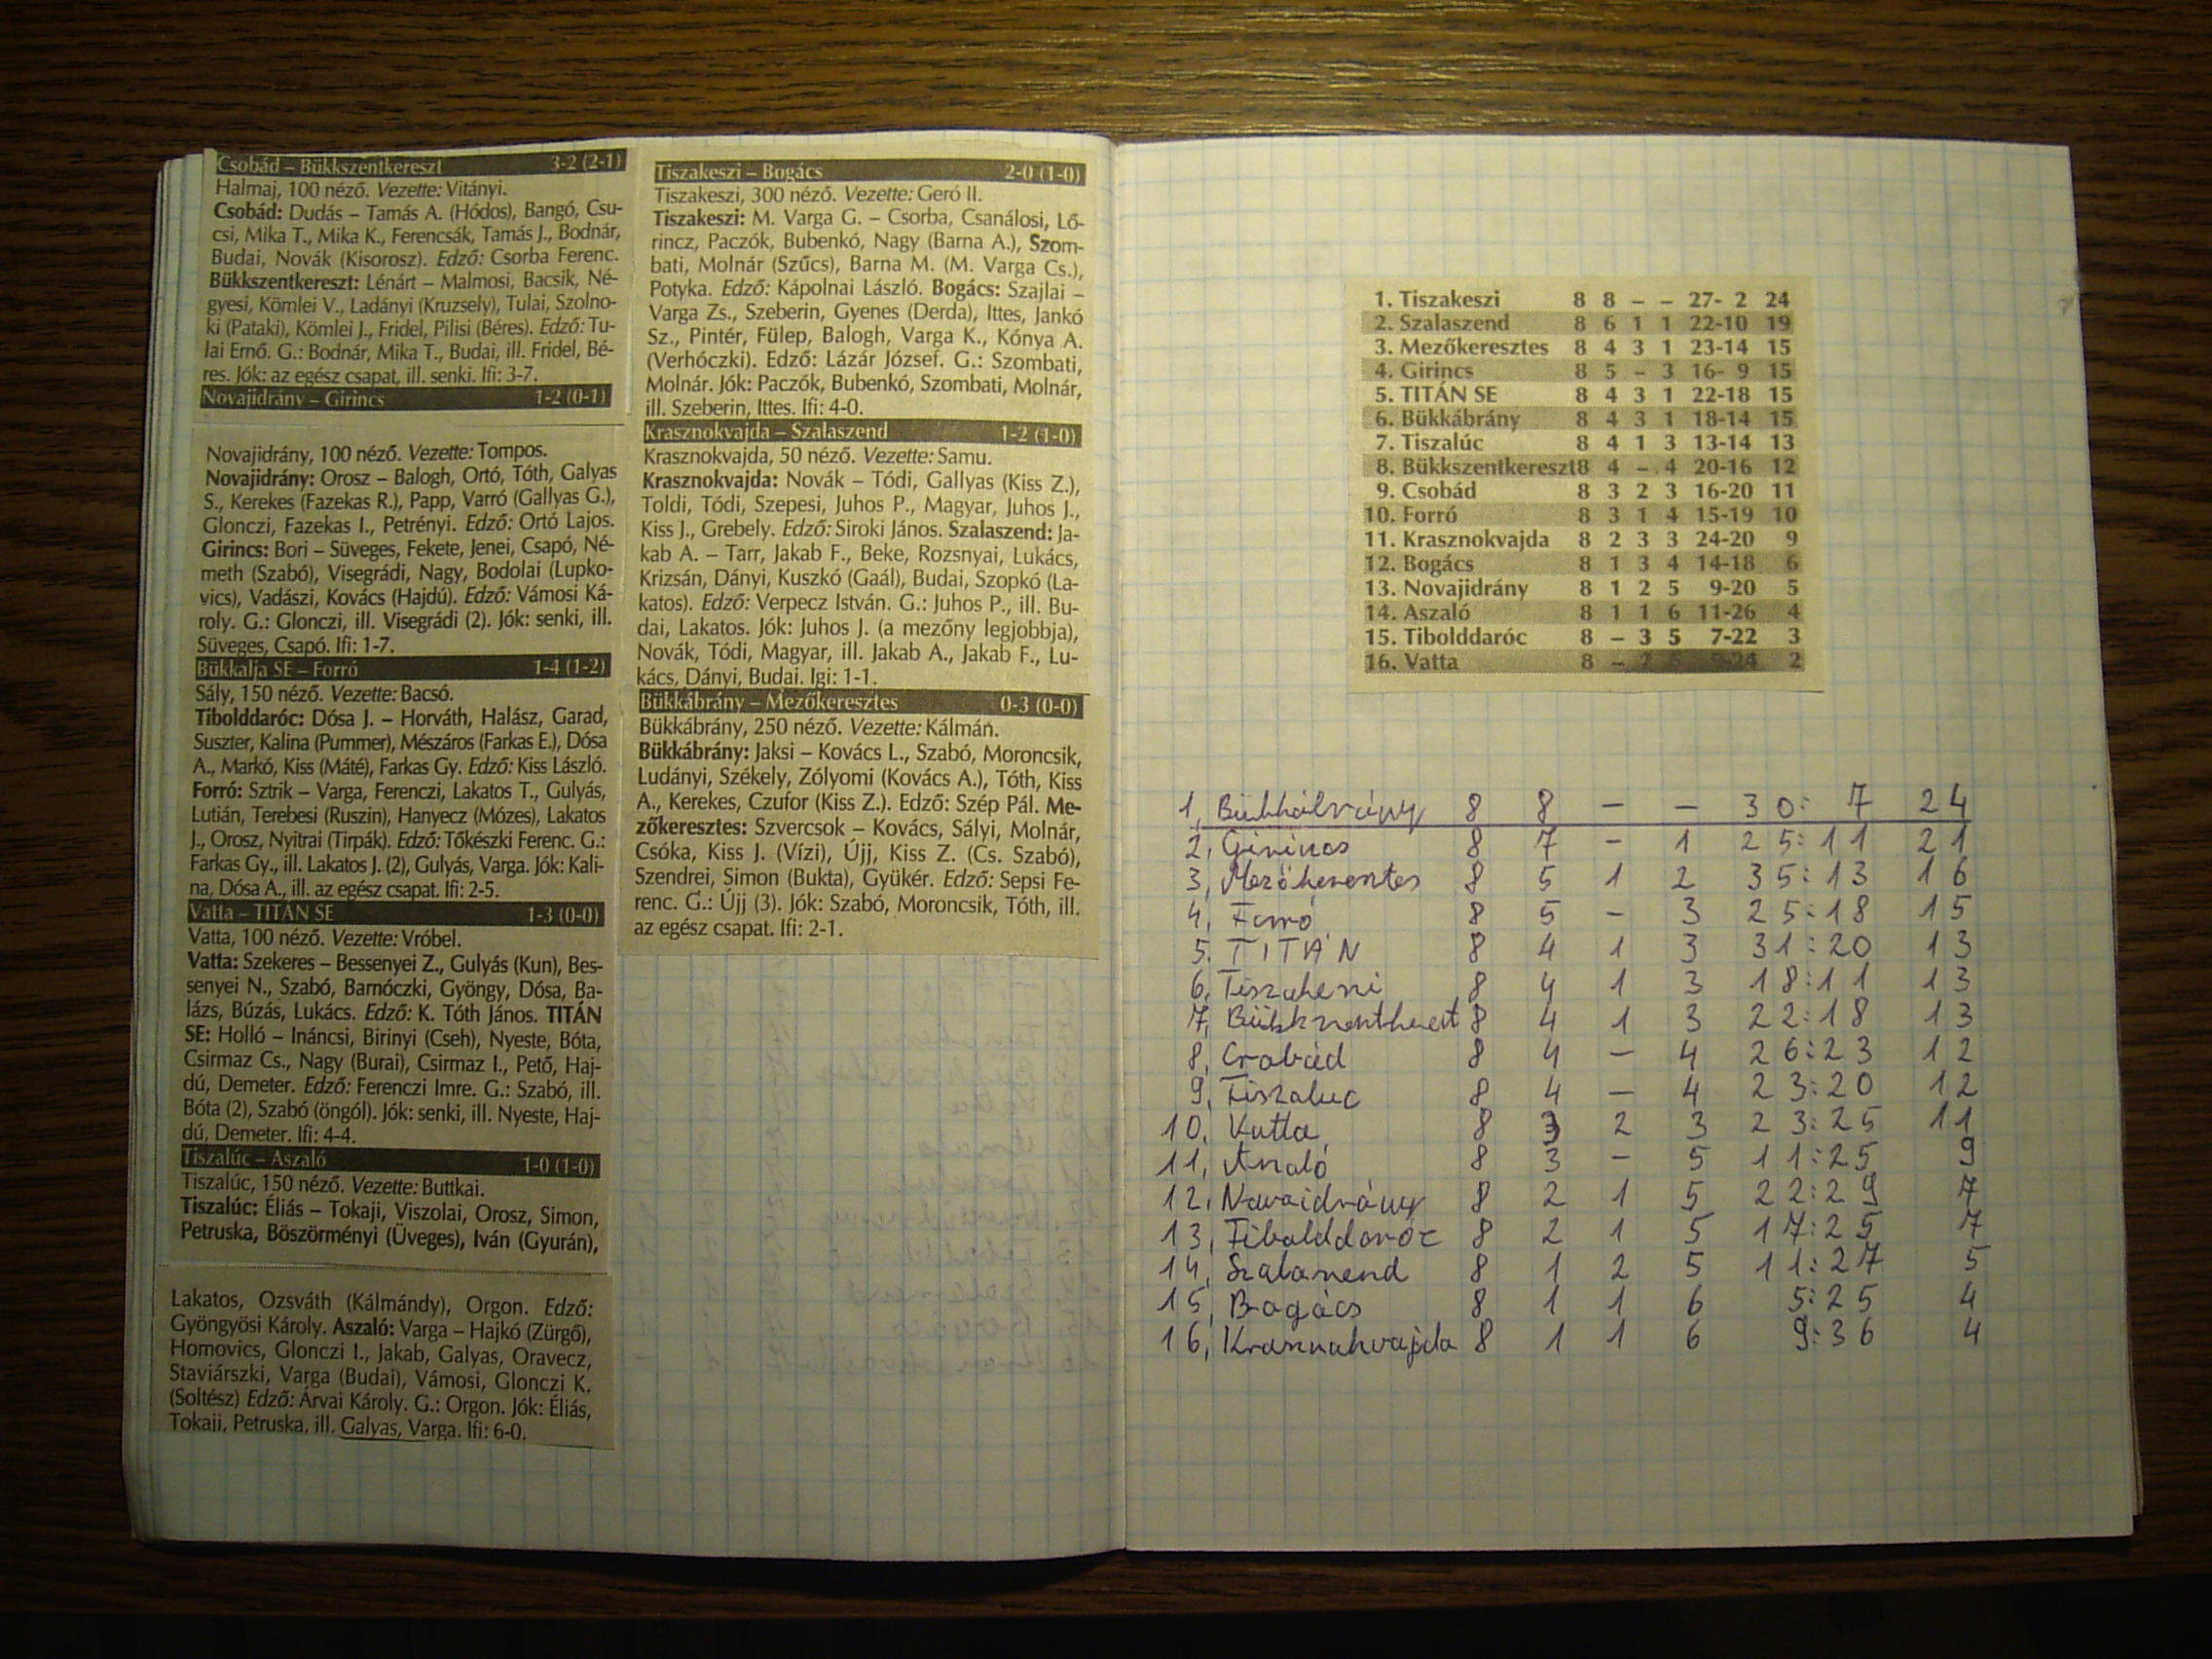 Csobád – Bükkszentkereszt 3-2 (2-1)
Halmaj, 100 néző. Vezette: Vitányi.
Csobád: Dudás – Tamás A. (Hódos), Bangó, Csu-
csi, Mika T., Mika K., Ferencsák, Tamás J., Bodnár,
Budai, Novák (Kisorosz). Edző: Csorba Ferenc.
Bükkszentkereszt: Lénárt – Malmosi, Bacsik, Né-
gyesi, Kömlei V., Ladányi (Kruzsely), Tulai, Szolno-
ki (Pataki), Kömlei J., Fridel, Pilisi (Béres). Edző: Tu-
lai Ernő. G.: Bodnár, Mika T., Budai, ill. Fridel, Bé-
res. Jók: az egész csapat, ill. senki. Ifi: 3-7.
Novajidrány – Girincs 1-2 (0-1)
Novajidrány, 100 néző. Vezette: Tompos.
Novajidrány: Orosz – Balogh, Ortó, Tóth, Galyas
S., Kerekes (Fazekas R.), Papp, Varró (Gallyas G.),
Glonczi, Fazekas I., Petrényi. Edző: Ortó Lajos.
Girincs: Bori – Süveges, Fekete, Jenei, Csapó, Né-
meth (Szabó), Visegrádi, Nagy, Bodolai (Lupko-
vics), Vadászi, Kovács (Hajdú). Edző: Vámosi Ká-
roly. G.: Glonczi, ill. Visegrádi (2). Jók: senki, ill.
Süveges, Csapó. Ifi: 1-7.
Bükkalja SE – Forró 1-4 (1-2)
Sály, 150 néző. Vezette: Bacsó.
Tibolddaróc: Dósa J. – Horváth, Halász, Garad,
Suszter, Kalina (Pummer), Mészáros (Farkas E.), Dósa
A., Markó, Kiss (Máté), Farkas Gy. Edző: Kiss László.
Forró: Sztrik – Varga, Ferenczi, Lakatos T., Gulyás,
Lutián, Terebesi (Ruszin), Hanyecz (Mózes), Lakatos
J., Orosz, Nyitrai (Tirpák). Edző: Tőkészki Ferenc. G.:
Farkas Gy., ill. Lakatos J. (2), Gulyás, Varga. Jók: Kali-
na, Dósa A., ill. az egész csapat. Ifi: 2-5.
Vatta – TITÁN SE 1-3 (0-0)
Vatta, 100 néző. Vezette: Vróbel.
Vatta: Szekeres – Bessenyei Z., Gulyás (Kun), Bes-
senyei N., Szabó, Barnóczki, Gyöngy, Dósa, Ba-
lázs, Búzás, Lukács. Edző: K. Tóth János. TITÁN
SE: Holló – Ináncsi, Birinyi (Cseh), Nyeste, Bóta,
Csirmaz Cs., Nagy (Burai), Csirmaz I., Pető, Haj-
dú, Demeter. Edző: Ferenczi Imre. G.: Szabó, ill.
Bóta (2), Szabó (öngól). Jók: senki, ill. Nyeste, Haj-
dú, Demeter. Ifi: 4-4.
Tiszalúc – Aszaló 1-0 (1-0)
Tiszalúc, 150 néző. Vezette: Buttkai.
Tiszalúc: Éliás – Tokaji, Viszolai, Orosz, Simon,
Petruska, Böszörményi (Üveges), Iván (Gyurán),
Lakatos, Ozsváth (Kálmándy), Orgon. Edző:
Gyöngyösi Károly. Aszaló: Varga – Hajkó (Zürgő),
Homovics, Glonczi I., Jakab, Galyas, Oravecz,
Staviárszki, Varga (Budai), Vámosi, Glonczi K.
(Soltész) Edző: Árvai Károly. G.: Orgon. Jók: Éliás,
Tokaji, Petruska, ill. Galyas, Varga. Ifi: 6-0.
Tiszakeszi – Bogács 2-0 (1-0)
Tiszakeszi, 300 néző. Vezette: Geró II.
Tiszakeszi: M. Varga G. – Csorba, Csanálosi, Lő-
rincz, Paczók, Bubenkó, Nagy (Barna A.), Szom-
bati, Molnár (Szűcs), Barna M. (M. Varga Cs.),
Potyka. Edző: Kápolnai László. Bogács: Szajlai –
Varga Zs., Szeberin, Gyenes (Derda), Ittes, Jankó
Sz., Pintér, Fülep, Balogh, Varga K., Kónya A.
(Verhóczki). Edző: Lázár József. G.: Szombati,
Molnár. Jók: Paczók, Bubenkó, Szombati, Molnár,
ill. Szeberin, Ittes. Ifi: 4-0.
Krasznokvajda – Szalaszend 1-2 (1-0)
Krasznokvajda, 50 néző. Vezette: Samu.
Krasznokvajda: Novák – Tódi, Gallyas (Kiss Z.),
Toldi, Tódi, Szepesi, Juhos P., Magyar, Juhos J.,
Kiss J., Grebely. Edző: Siroki János. Szalaszend: Ja-
kab A. – Tarr, Jakab F., Beke, Rozsnyai, Lukács,
Krizsán, Dányi, Kuszkó (Gaál), Budai, Szopkó (La-
katos). Edző: Verpecz István. G.: Juhos P., ill. Bu-
dai, Lakatos. Jók: Juhos J. (a mezőny legjobbja),
Novák, Tódi, Magyar, ill. Jakab A., Jakab F., Lu-
kács, Dányi, Budai. Igi: 1-1.
Bükkábrány – Mezőkeresztes 0-3 (0-0)
Bükkábrány, 250 néző. Vezette: Kálmán.
Bükkábrány: Jaksi – Kovács L., Szabó, Moroncsik,
Ludányi, Székely, Zólyomi (Kovács A.), Tóth, Kiss
A., Kerekes, Czufor (Kiss Z.). Edző: Szép Pál. Me-
zőkeresztes: Szvercsok – Kovács, Sályi, Molnár,
Csóka, Kiss J. (Vízi), Újj, Kiss Z. (Cs. Szabó),
Szendrei, Simon (Bukta), Gyükér. Edző: Sepsi Fe-
renc. G.: Újj (3). Jók: Szabó, Moroncsik, Tóth, ill.
az egész csapat. Ifi: 2-1.
1. Tiszakeszi 8 8 – – 27- 2 24
2. Szalaszend 8 6 1 1 22-10 19
3. Mezőkeresztes 8 4 3 1 23-14 15
4. Girincs 8 5 – 3 16- 9 15
5. TITÁN SE 8 4 3 1 22-18 15
6. Bükkábrány 8 4 3 1 18-14 15
7. Tiszalúc 8 4 1 3 13-14 13
8. Bükkszentkereszt8 4 – 4 20-16 12
9. Csobád 8 3 2 3 16-20 11
10. Forró 8 3 1 4 15-19 10
11. Krasznokvajda 8 2 3 3 24-20 9
12. Bogács 8 1 3 4 14-18 6
13. Novajidrány 8 1 2 5 9-20 5
14. Aszaló 8 1 1 6 11-26 4
15. Tibolddaróc 8 – 3 5 7-22 3
16. Vatta 8 – 2
1, Bükkábrány 8 8 – – 30: 7 24
2, Girincs 8 7 – 1 25:11 21
3, Mezőkeresztes 8 5 1 2 35:13 16
4, Forró 8 5 – 3 25:18 15
5. TITÁN 8 4 1 3 31:20 13
6, Tiszakeszi 8 4 1 3 18:11 13
7, Bükkszentkereszt 8 4 1 3 22:18 13
8, Csobád 8 4 – 4 26:23 12
9, Tiszaluc 8 4 – 4 23:20 12
10, Vatta 8 3 2 3 23:25 11
11, Aszaló 8 3 – 5 11:25 9
12, Novaidrány 8 2 1 5 22:29 7
13, Tibolddaróc 8 2 1 5 17:25 7
14, Szalaszend 8 1 2 5 11:27 5
15, Bogács 8 1 1 6 5:25 4
16, Krasznokvajda 8 1 1 6 9:36 4